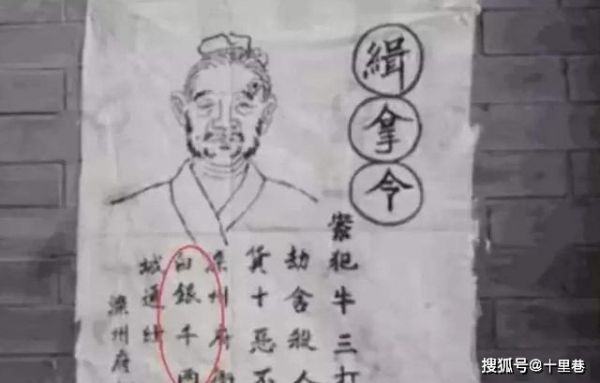 緝拿令
案犯牛三打
劫舍殺人
貨十惡不
滦州府衙
白銀千两
城通緝
滦州府
搜狐号@十里巷